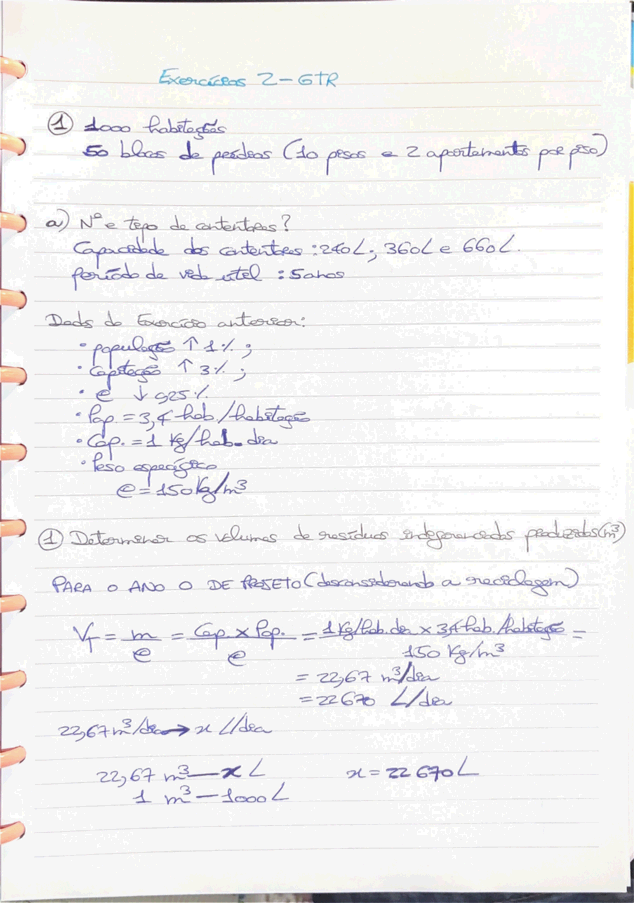 Exercícios 2 - GTR
① 1000 habitações
50 blocos de prédios (10 pisos e 2 apartamentos por piso)
a) Nº e tipo de contentores?
Capacidade dos contentores: 240L; 360L e 660L.
período de vida útil: 5 anos
Dados do Exercício anterior:
• população ↑ 1%;
• Capitação ↑ 3%;
• e ↓ 0,25%
• Pop = 3,4 hab/habitação
• Cap. = 1 Kg/hab.dia
• Peso específico
e = 150 Kg/m³
① Determinar os volumes de resíduos indiferenciados produzidos (m³)
PARA O ANO 0 DE PROJETO (desconsiderando a reciclagem)
V_T = m/e = Cap. x Pop./e = 1 Kg/hab.dia x 3,4 hab./habitação/150 Kg/m³ =
= 22,67 m³/dia
= 22670 L/dia
22,67 m³/dia → x L/dia
22,67 m³ — x L x = 22 670 L
1 m³ — 1000 L